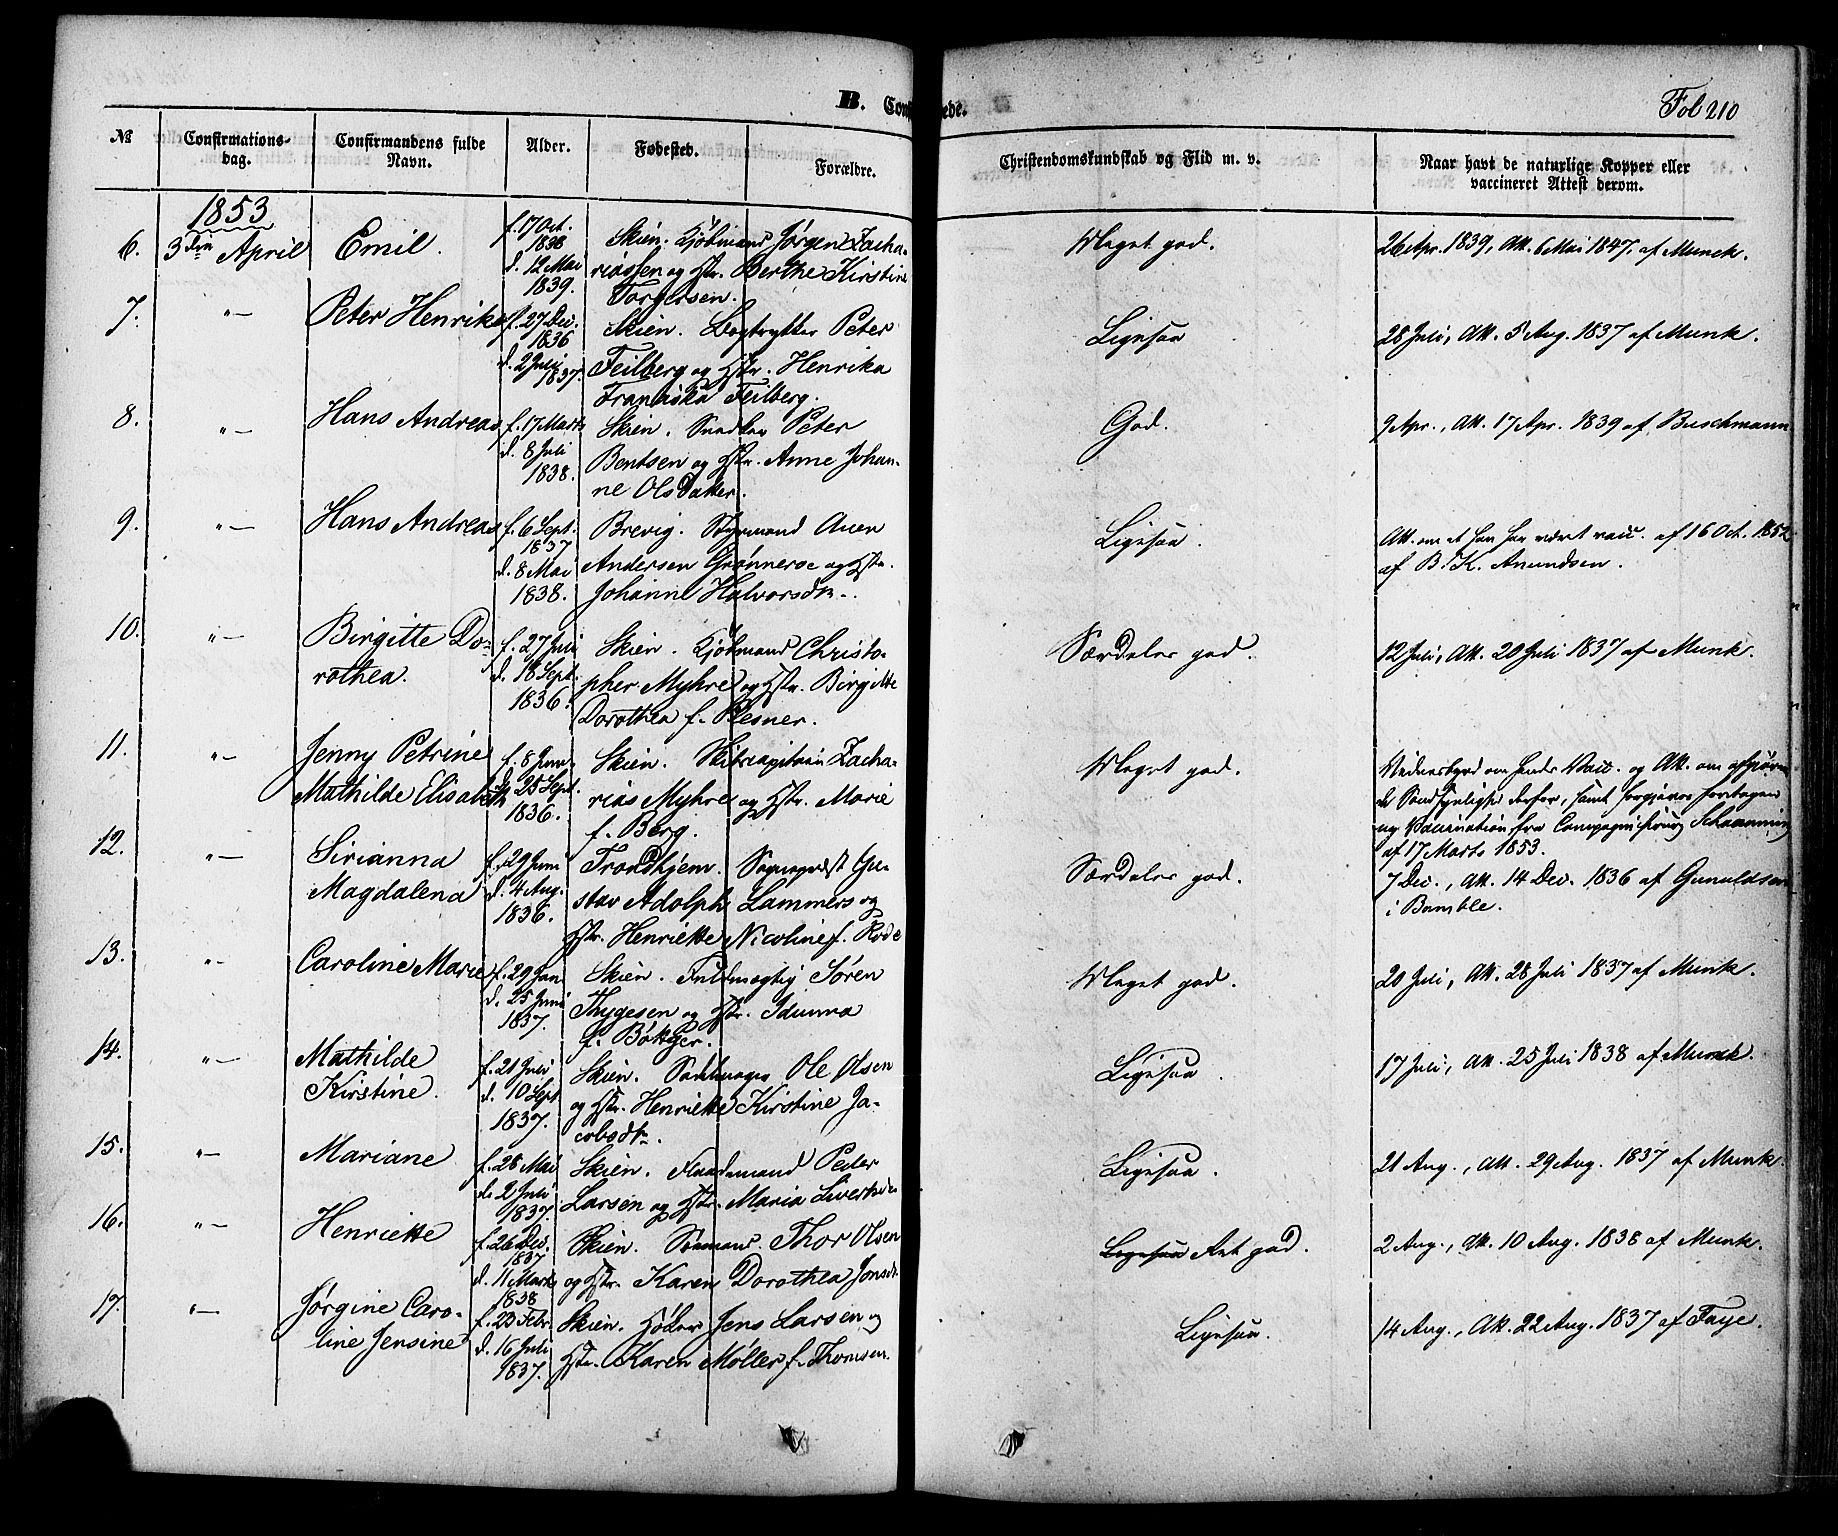 B. Conf
ede.
Fol 210
№
Confirmations-
dag.
Confirmandens fulde
Navn.
Alder.
Fødested.
Forældre.
Christendomskundskab og Flid m. v.
Naar havt de naturlige Kopper eller
vaccineret Attest derom.
1853
6. 3die April Emil. f. 17 Oct. 1838 d. 12 Mai 1839. Skien. Kjøbmand Jørgen Zacha-
riassen og Hstr. Berthe Kirstine
Torgersen.
Meget god. 26 Apr. 1839, Att. 6 Mai 1847. af Munck.
7. "— Peter Henrik f. 27 Dec. 1836 d. 2 Juli 1837. Skien. Bogtrykker Peter
Feilberg og Hstr. Henrika
Franciska Feilberg.
Ligesaa 28 Juli, Att. 5 Aug. 1837 af Munk.
8. "— Hans Andreas f. 17 Marts d. 8 Juli 1838. Skien. Snedker Peter
Bentsen og Hstr. Anne Johan-
ne Olsdatter.
God. 9 Apr., Att. 17 Apr. 1839 af Buschmann
9. "— Hans Andreas f. 6 Sept. 1837 d. 8 Mai 1838. Brevig. Styrmand Aven
Andersen Grønnerse og Hstr.
Johanne Halvorsdtr.
Ligesaa. Att. om at han har været vacc. af 16 Oct. 1852
af B. K. Amundsen.
10. "— Birgitte Do-
rothea. f. 27 Juli d. 18 Sept. 1836. Skien. Kjøbmand Christo-
pher Myhre og Hstr. Birgitte
Dorothea f. Plesner.
Særdeles god. 12 Juli, Att. 20 Juli 1837 af Munk.
11. "— Jenny Petrine
Mathilde Elisabeth f. 8 Juni d. 25 Sept. 1836. Skien. Skibscapitain Zacha-
rias Myhre og Hstr. Marie
f. Berg.
Meget god. Vidnesbyrd om hendes Vacc. og Att. om afgjøren-
de Sandsynlighed derfor, samt forgjæves foretagen
ny Vaccination fra Compagnichirurg Schanning
af 17 Marts 1853.
12. "— Sirianna
Magdalena f. 29 Juni d. 4 Aug. 1836. Trondhjem. Sognepræst Gu-
stav Adolph Lammers og
Hstr. Henriette Nicoline f. Rode
Særdeles god. 7 Dec., Att. 14 Dec. 1836 af Gunuldsen
i Bamble.
13. "— Caroline Marie f. 29 Jan d. 25 Juni 1837. Skien. Fuldmægtig Søren
Thygesen og Hstr. Idunna
f. Bøttger.
Meget god. 20 Juli, Att. 28 Juli 1837 af Munk.
14. "— Mathilde
Kirstine. f. 21 Juli d. 10 Sept 1837. Skien. Sadelmager Ole Olsen
og Hstr. Henriette Kirstine Ja-
cobsdtr.
Ligesaa. 17 Juli, Att. 25 Juli 1838 af Munck.
15. "— Mariane f. 28 Mai d. 2 Juli 1837. Skien. Flaademand Peder
Larsen og Hstr. Maria
Ligesaa. 21 Aug., Att. 29 Aug. 1837 af Munk.
16. "— Henriette f. 26 Dec. 1837 d. 11 Marts 1838 Skien. Sømand. Thor Olsen
og Hstr. Karen Dorothea Jonsdt.
Ligesaa Ret god. 2 Aug., Att. 10 Aug. 1838 af Munk.
17. "— Jørgine Caro-
line Jensine f. 23 Febr. d. 16 Juli 1837. Skien. Høker Jens Larsen og
Hstr. Karen Møller f. Thomsen.
Ligesaa. 14 Aug., Att. 22 Aug. 1837 af Faye.